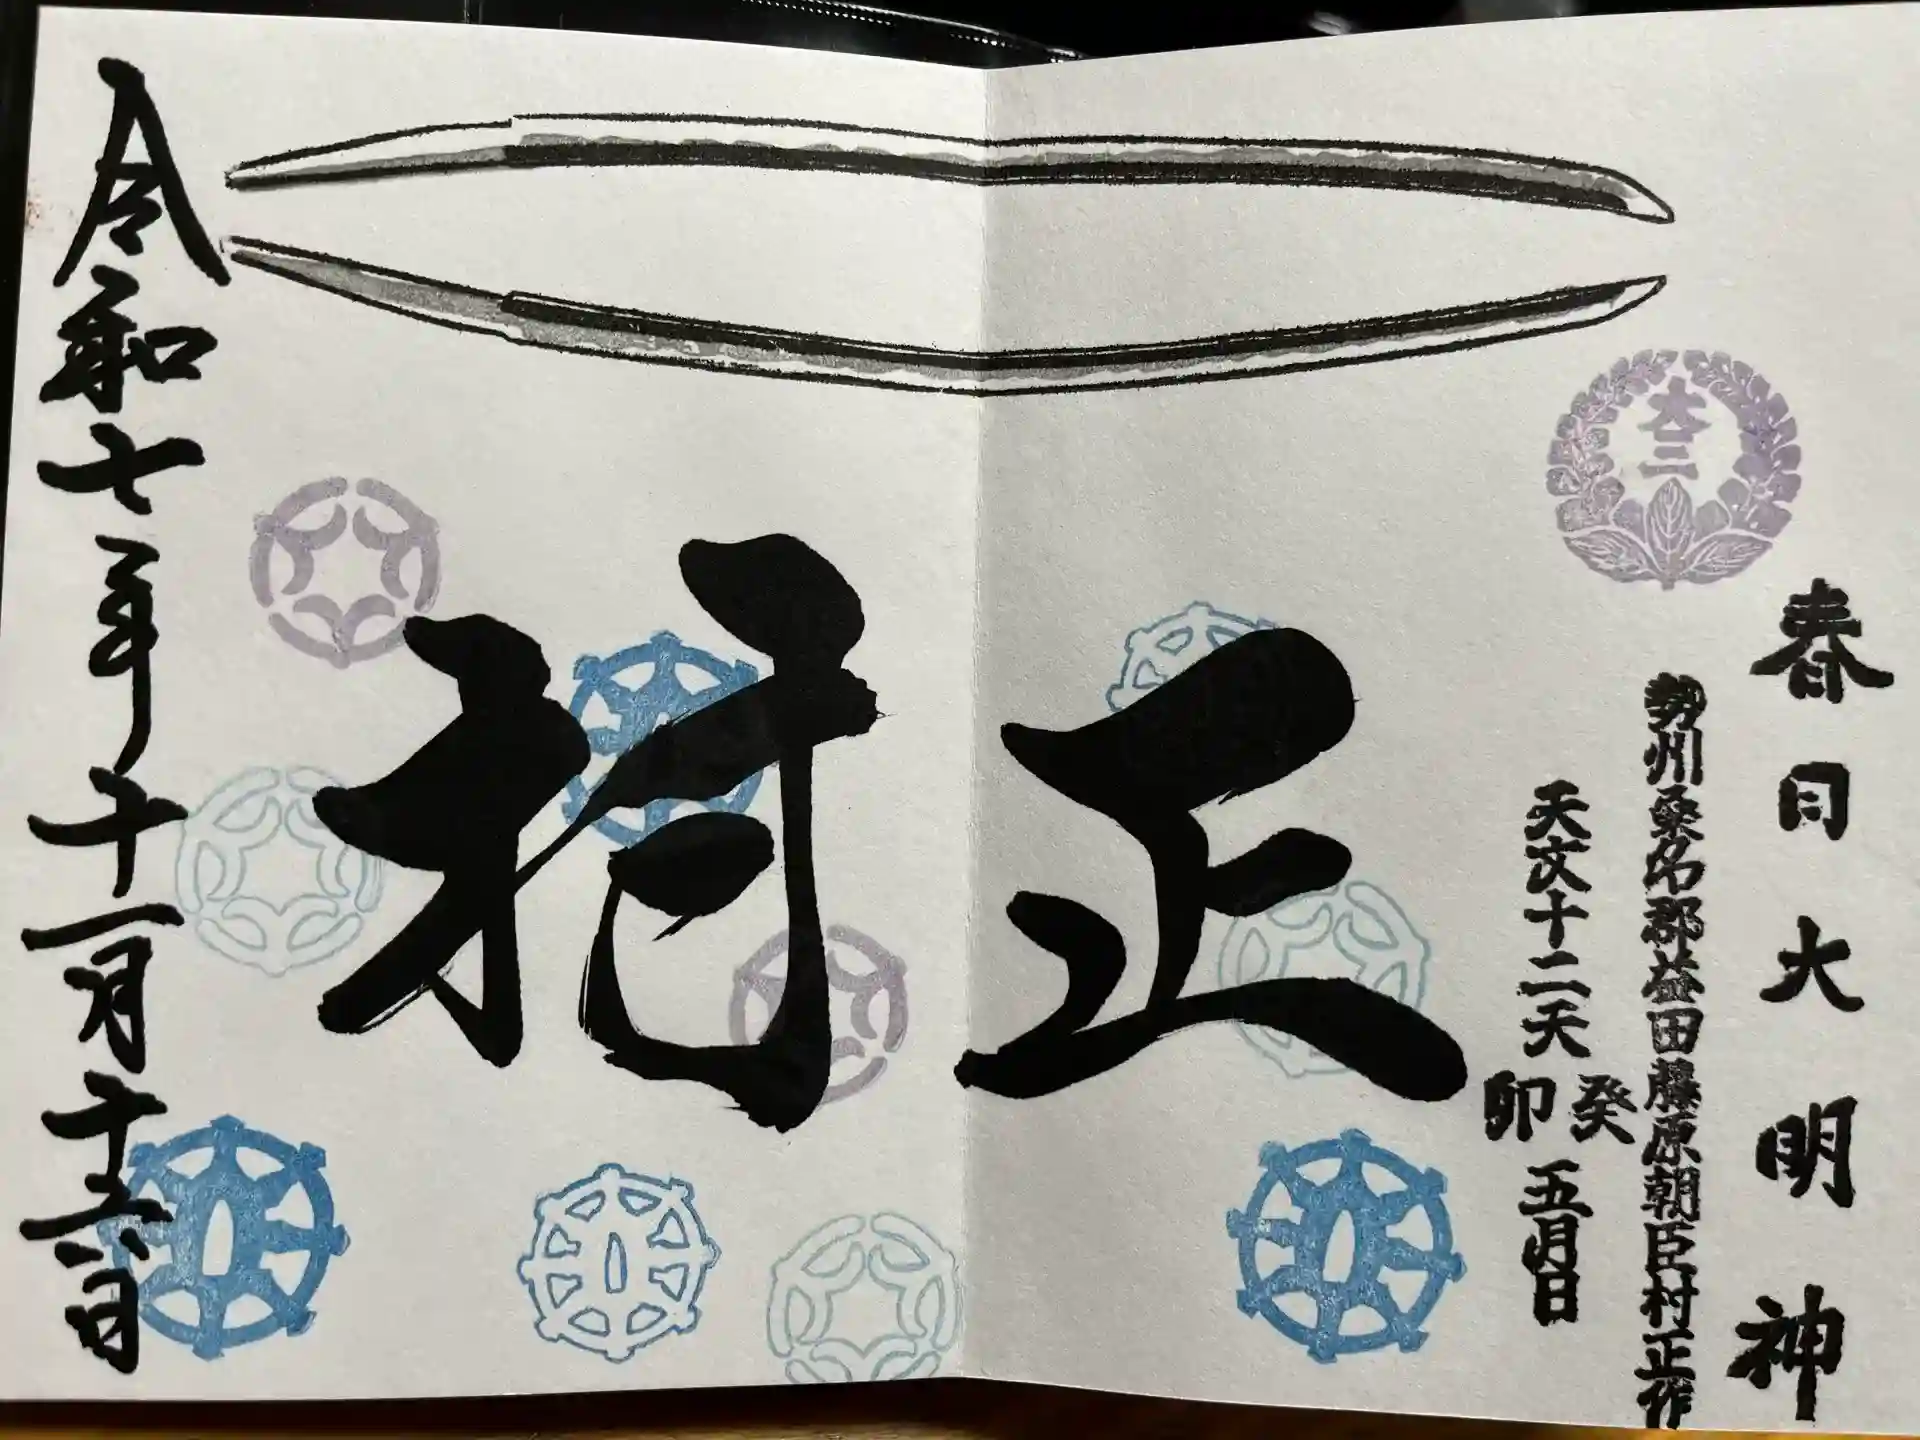 春日大明神
勢州桑名郡益田藤原朝臣村正作
天文十二天癸卯五月日
大二
村正
令和七年十一月十六日